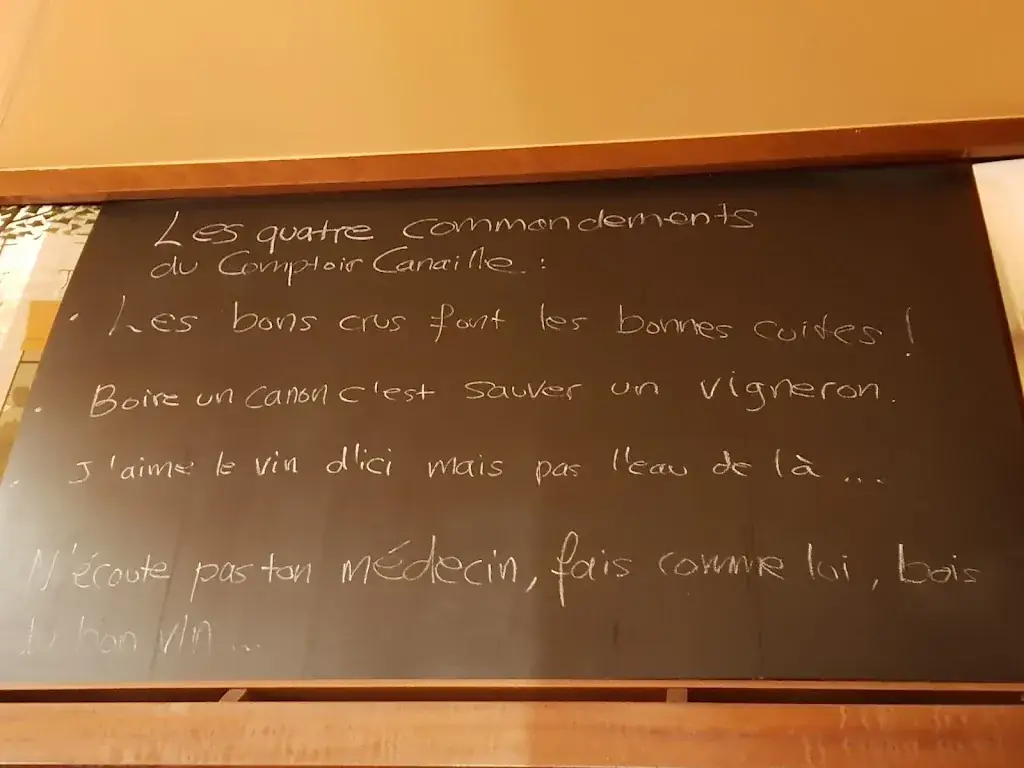 Les quatre commandements
du Comptoir Canaille :
. Les bons crus font les bonnes cuites !
. Boire un canon c'est sauver un vigneron.
. J'aime le vin d'ici mais pas l'eau de là ...
N'écoute pas ton médecin, fais comme lui, bois
du bon vin ...